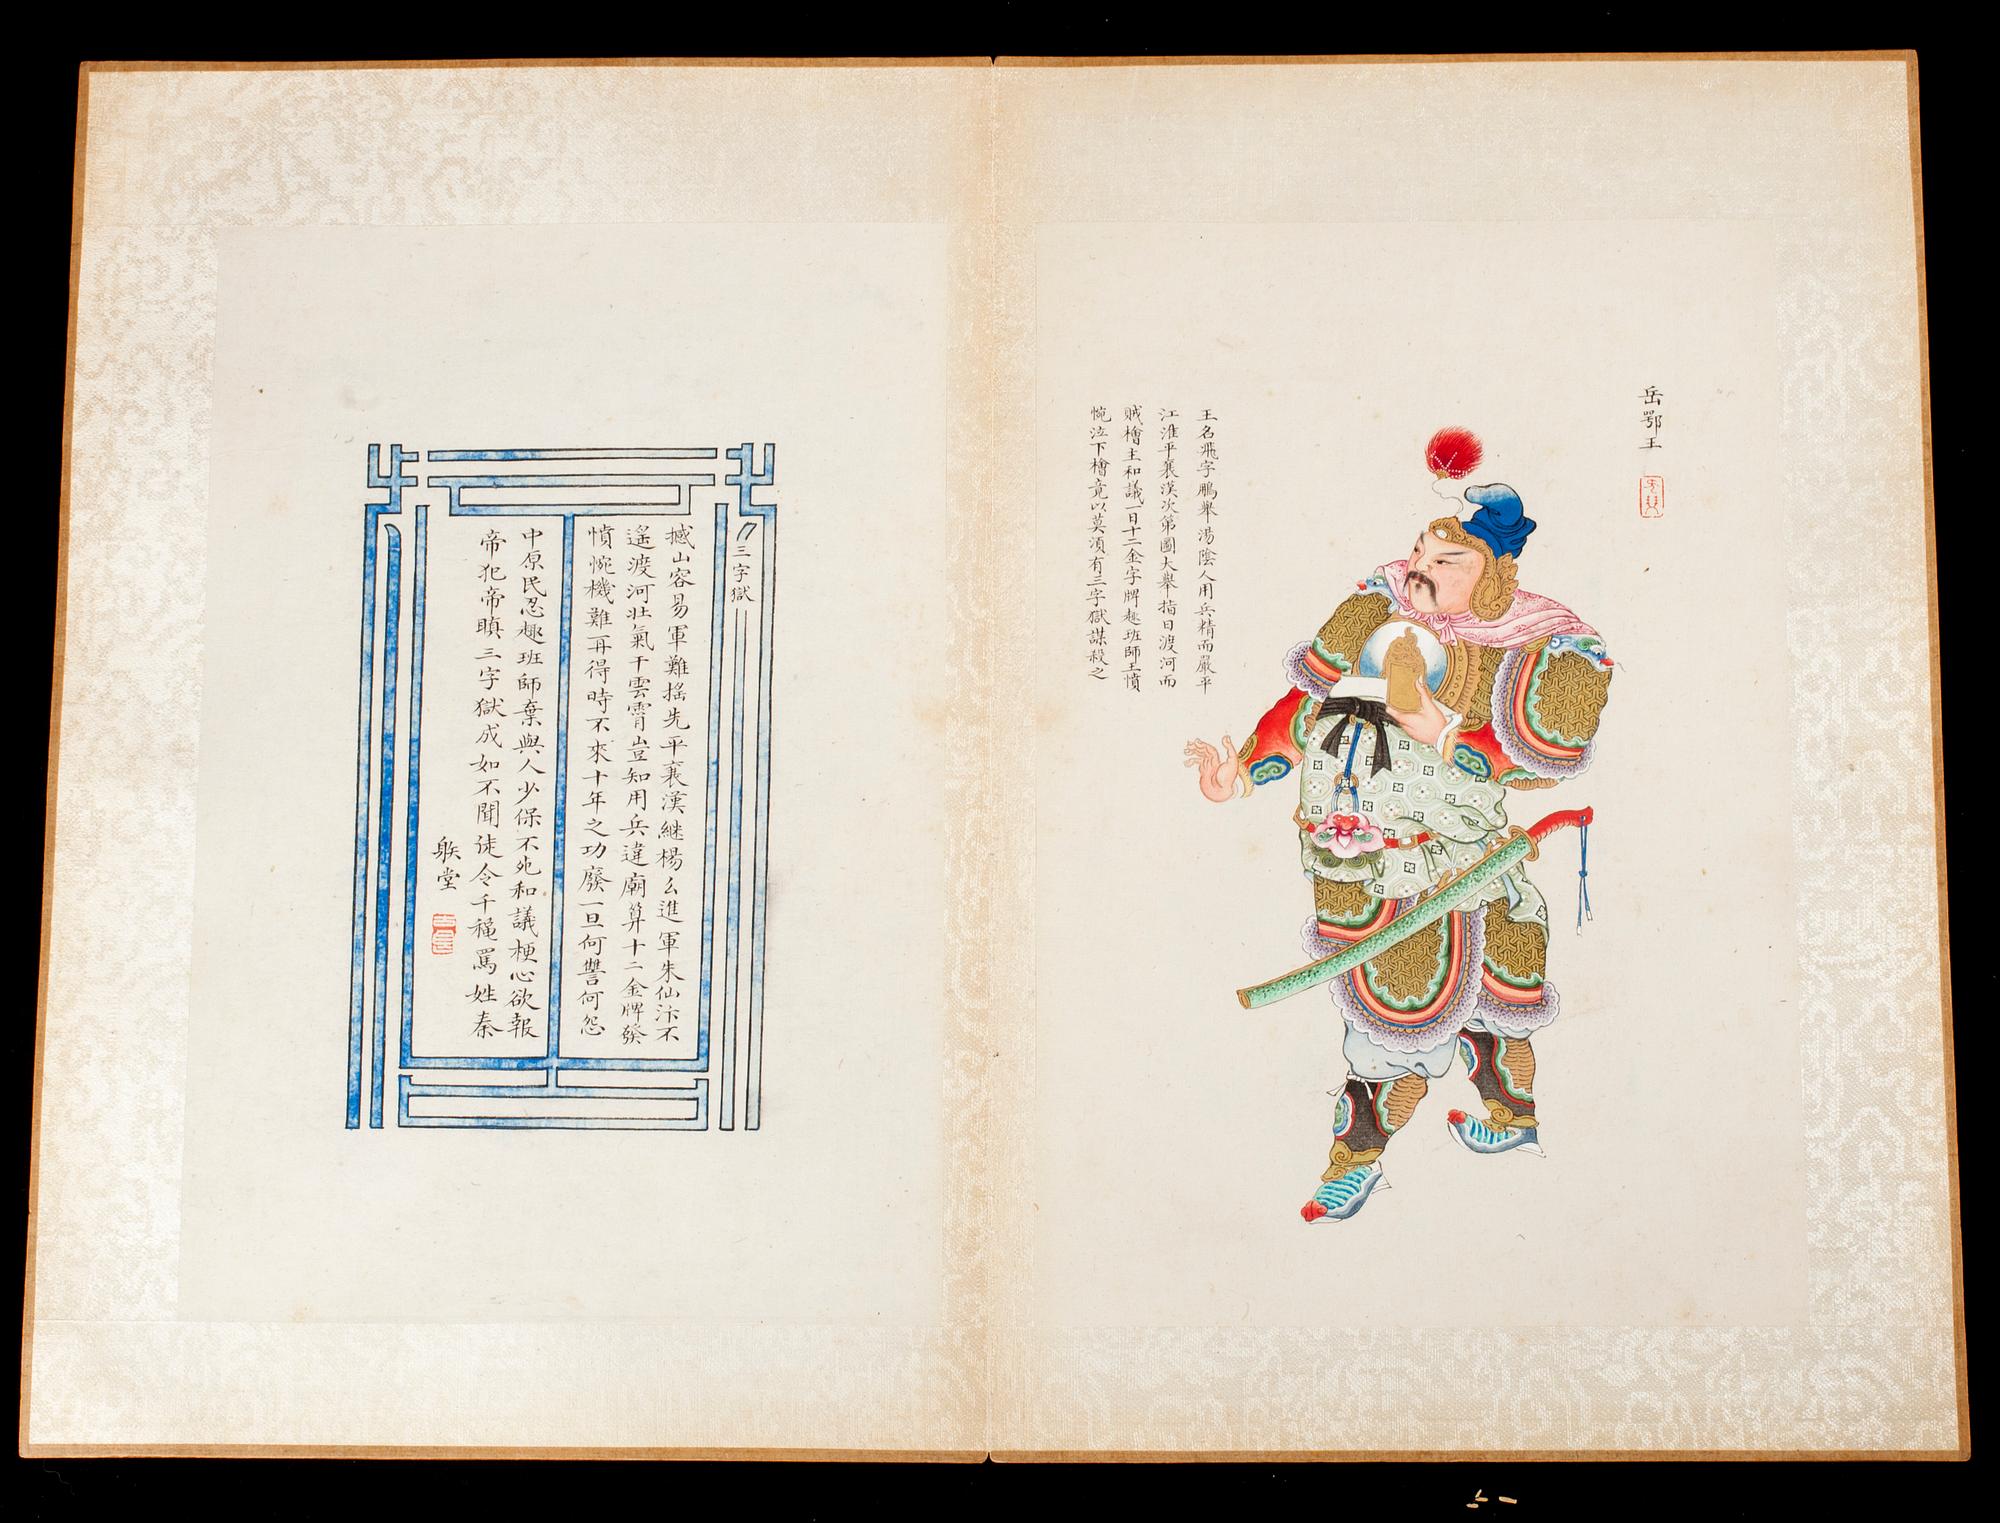 岳鄂王
王名飛字鵬舉湯陰人用兵精而嚴平
江淮平襄漢次第圖大舉指日渡河而
賊檜主和議一日十二金字牌趣班師王憤
惋泣下檜竟以莫須有三字獄謀殺之
三字獄
撼山容易軍難搖先平襄漢繼楊么進軍朱仙汴不
遥渡河壮氣干雲霄豈知用兵違廟算十二金牌發
憤惋機難再得時不來十年之功廢一旦何讐何怨
中原民忍趣班師棄與人少保不死和議梗心欲報
帝犯帝瞋三字獄成如不聞徒令千穐罵姓秦
堂